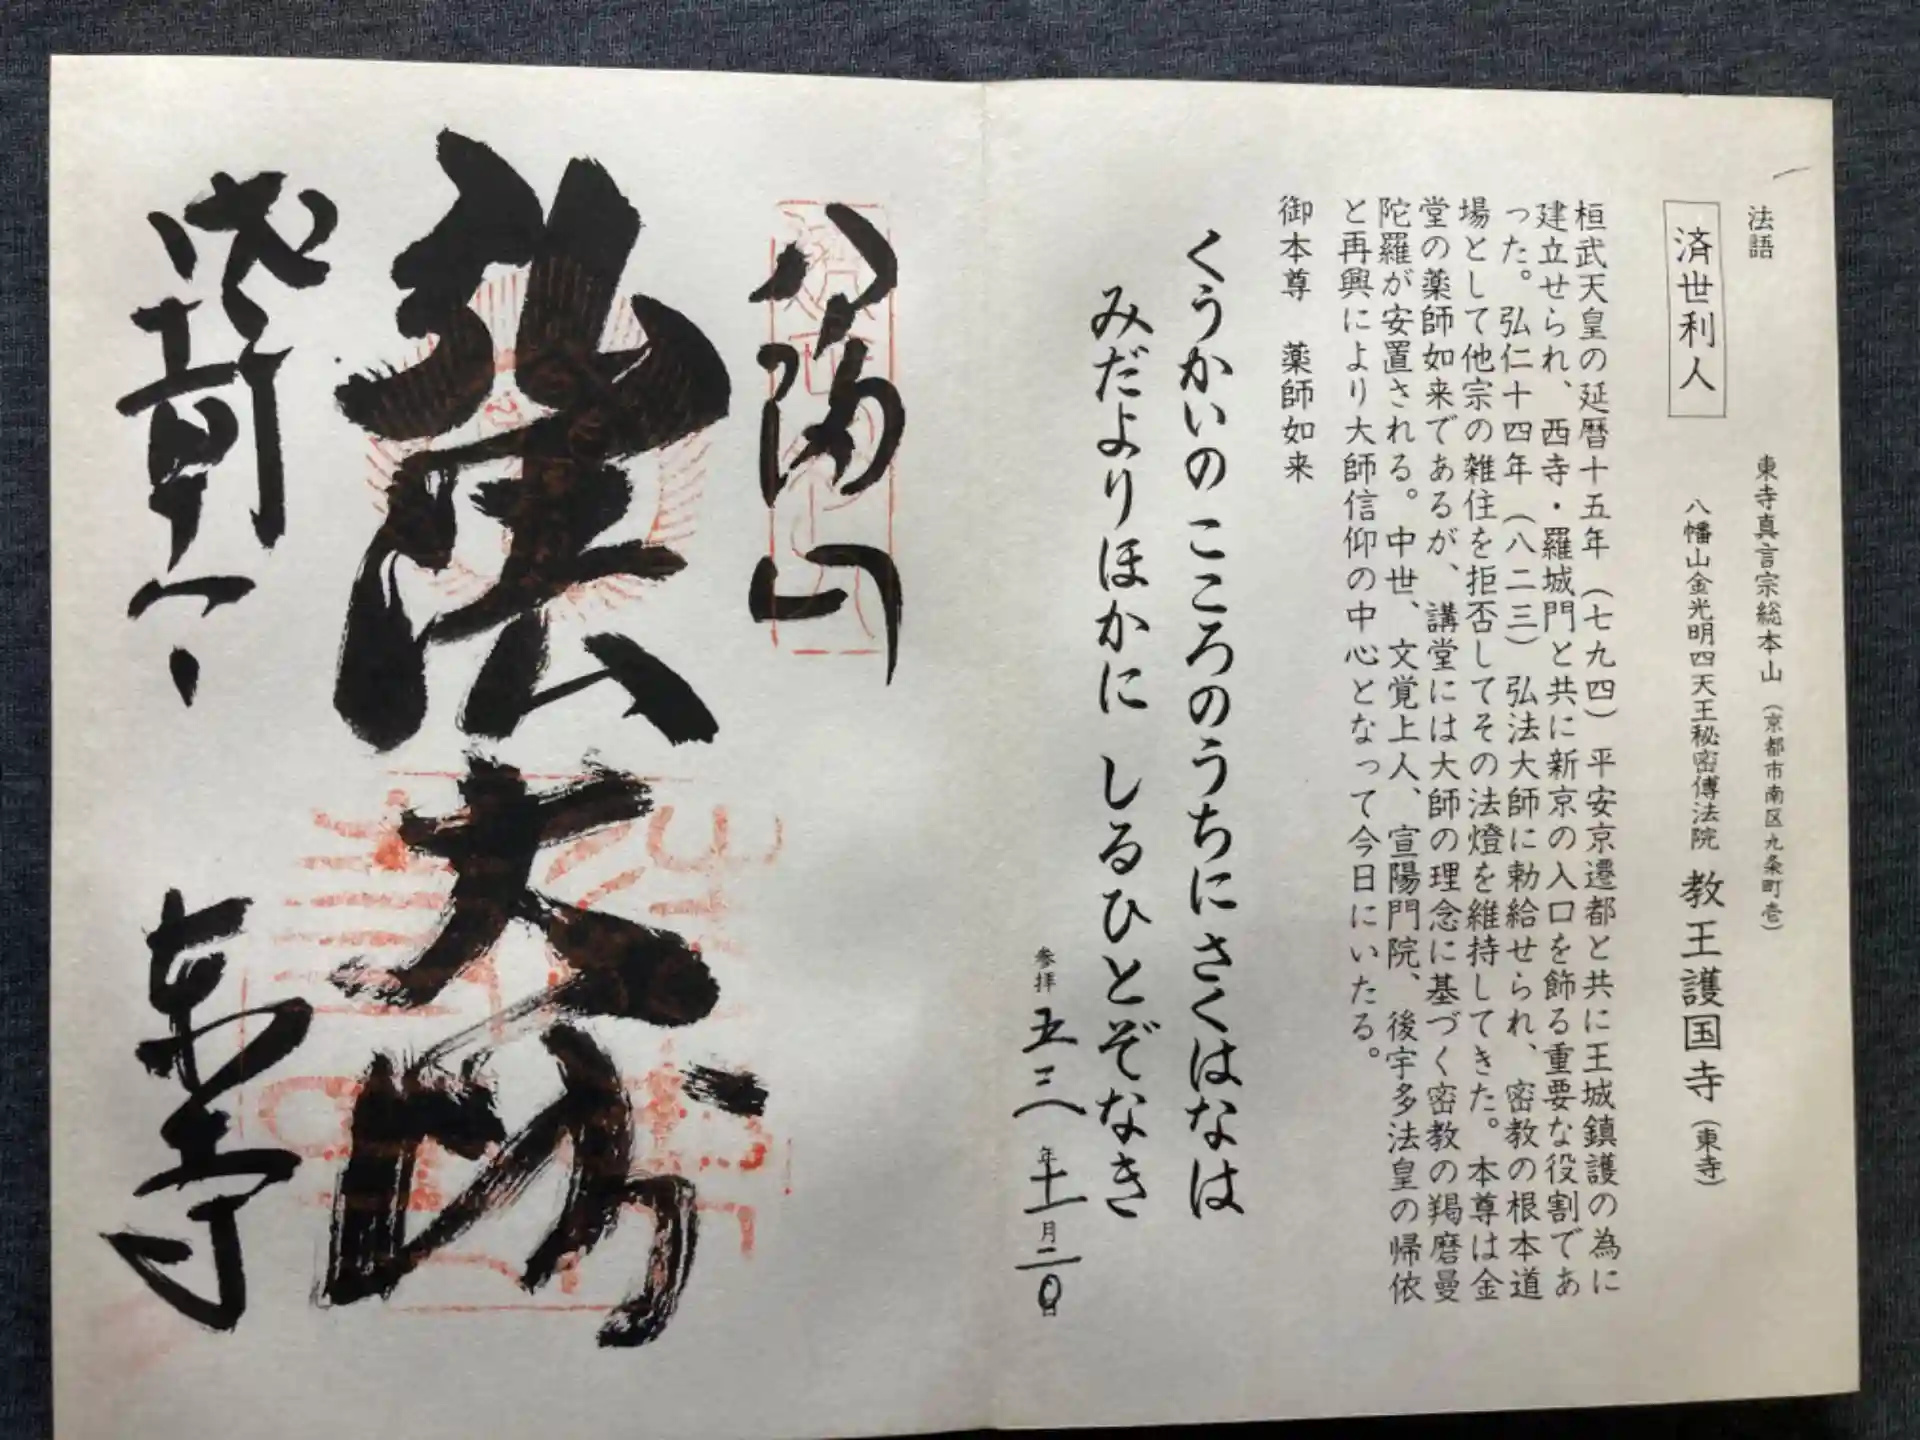 法語
東寺真言宗総本山（京都市南区九条町壱）
済世利人
八幡山金光明四天王秘密傳法院　教王護国寺（東寺）
桓武天皇の延暦十五年（七九四）平安京遷都と共に王城鎮護の為に
建立せられ、西寺・羅城門と共に新京の入口を飾る重要な役割であ
った。弘仁十四年（八二三）弘法大師に勅給せられ、密教の根本道
場として他宗の雑住を拒否してその法燈を維持してきた。本尊は金
堂の薬師如来であるが、講堂には大師の理念に基づく密教の羯磨曼
陀羅が安置される。中世、文覚上人、宣陽門院、後宇多法皇の帰依
と再興により大師信仰の中心となって今日にいたる。
御本尊　薬師如来
くうかいの こころのうちにさくはなは
みだよりほかに しるひとぞなき
参拝 五三八年十一月二〇日
八嶋山
弘法大師
東寺